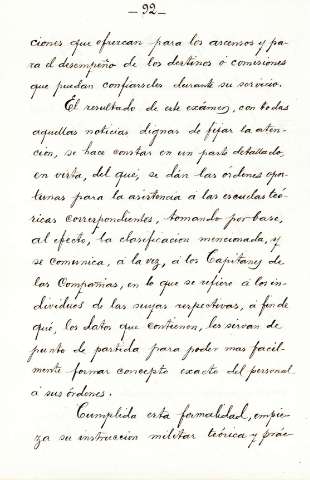 - 92 -
ciones que ofrezcan para los ascensos y pa-
ra el desempeño de los destinos ó comisiones
que puedan confiarseles durante su servicio.
El resultado de este exámen, con todas
aquellas noticias dignas de fijar la aten-
cion, se hace constar en un parte detallado,
en vista, del qué, se dán las órdenes opor-
tunas para la asistencia á las escuelas teó-
ricas correspondientes, tomando por base,
al efecto, la clasificacion mencionada, y
se comunica, á la vez, á los Capitanes de
las Compañias, en lo que se refiere á los in-
dividuos de las suyas respectivas, á fin de
qué, los datos que contienen, les sirvan de
punto de partida para poder mas facil-
mente formar concepto exacto del personal
á sus órdenes.
Cumplida esta formalidad, empie-
za su instruccion militar teórica y prác-